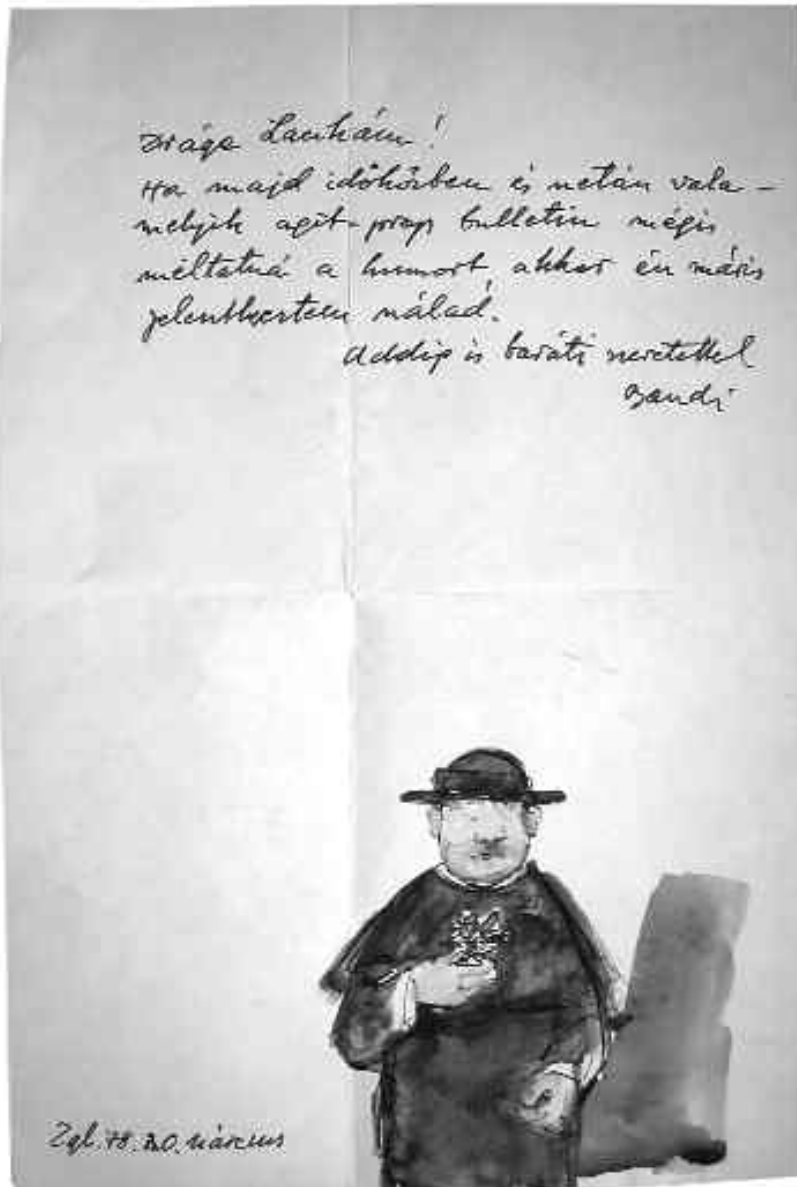 Drága Lacikám!
Ha majd időközben is netán vala-
melyik agit-prop bulletin mégis
méltatná a humort, akkor én máris
jelentkeztem nálad.
Addig is baráti szeretettel
Bandi
Zgb. 78. 20. március